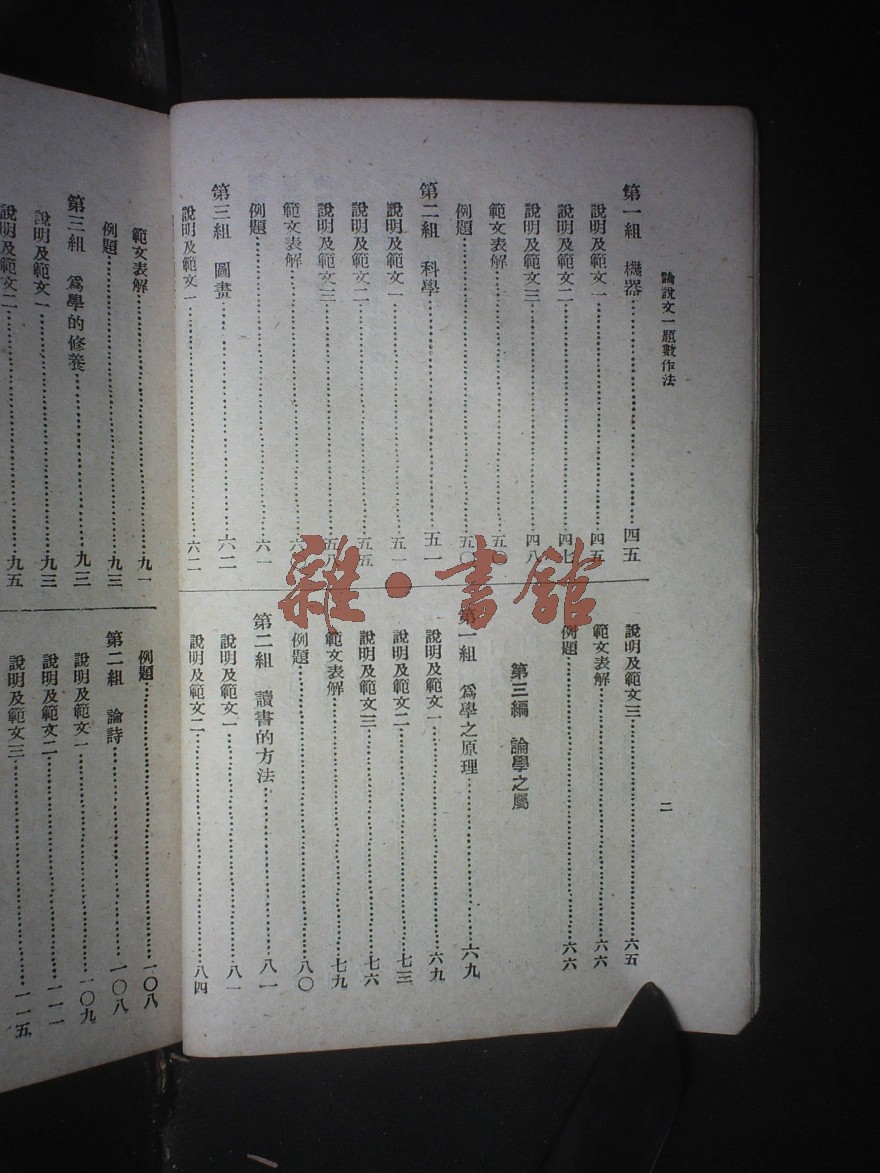 論說文一題數作法
第一組　機器……四五
說明及範文一……四五
說明及範文二……四七
說明及範文三……四八
範文表解……五〇
例題……五〇
第二組　科學……五一
說明及範文一……五一
說明及範文二……五五
說明及範文三……五八
範文表解……六
例題……六一
第三組　圖畫……六二
說明及範文一……六二
說明及範文三……六五
範文表解……六六
例題……六六
第三編　論學之屬
第一組　爲學之原理……六九
說明及範文一……六九
說明及範文二……七三
說明及範文三……七六
範文表解……七九
例題……八〇
第二組　讀書的方法……八一
說明及範文一……八一
說明及範文二……八四
二
範文表解……九一
例題……九三
第三組　爲學的修養……九三
說明及範文一……九三
說明及範文二……九五
例題……一〇八
第二組　論詩……一〇八
說明及範文一……一〇九
說明及範文二……一一一
說明及範文三……一一五
雜·書館